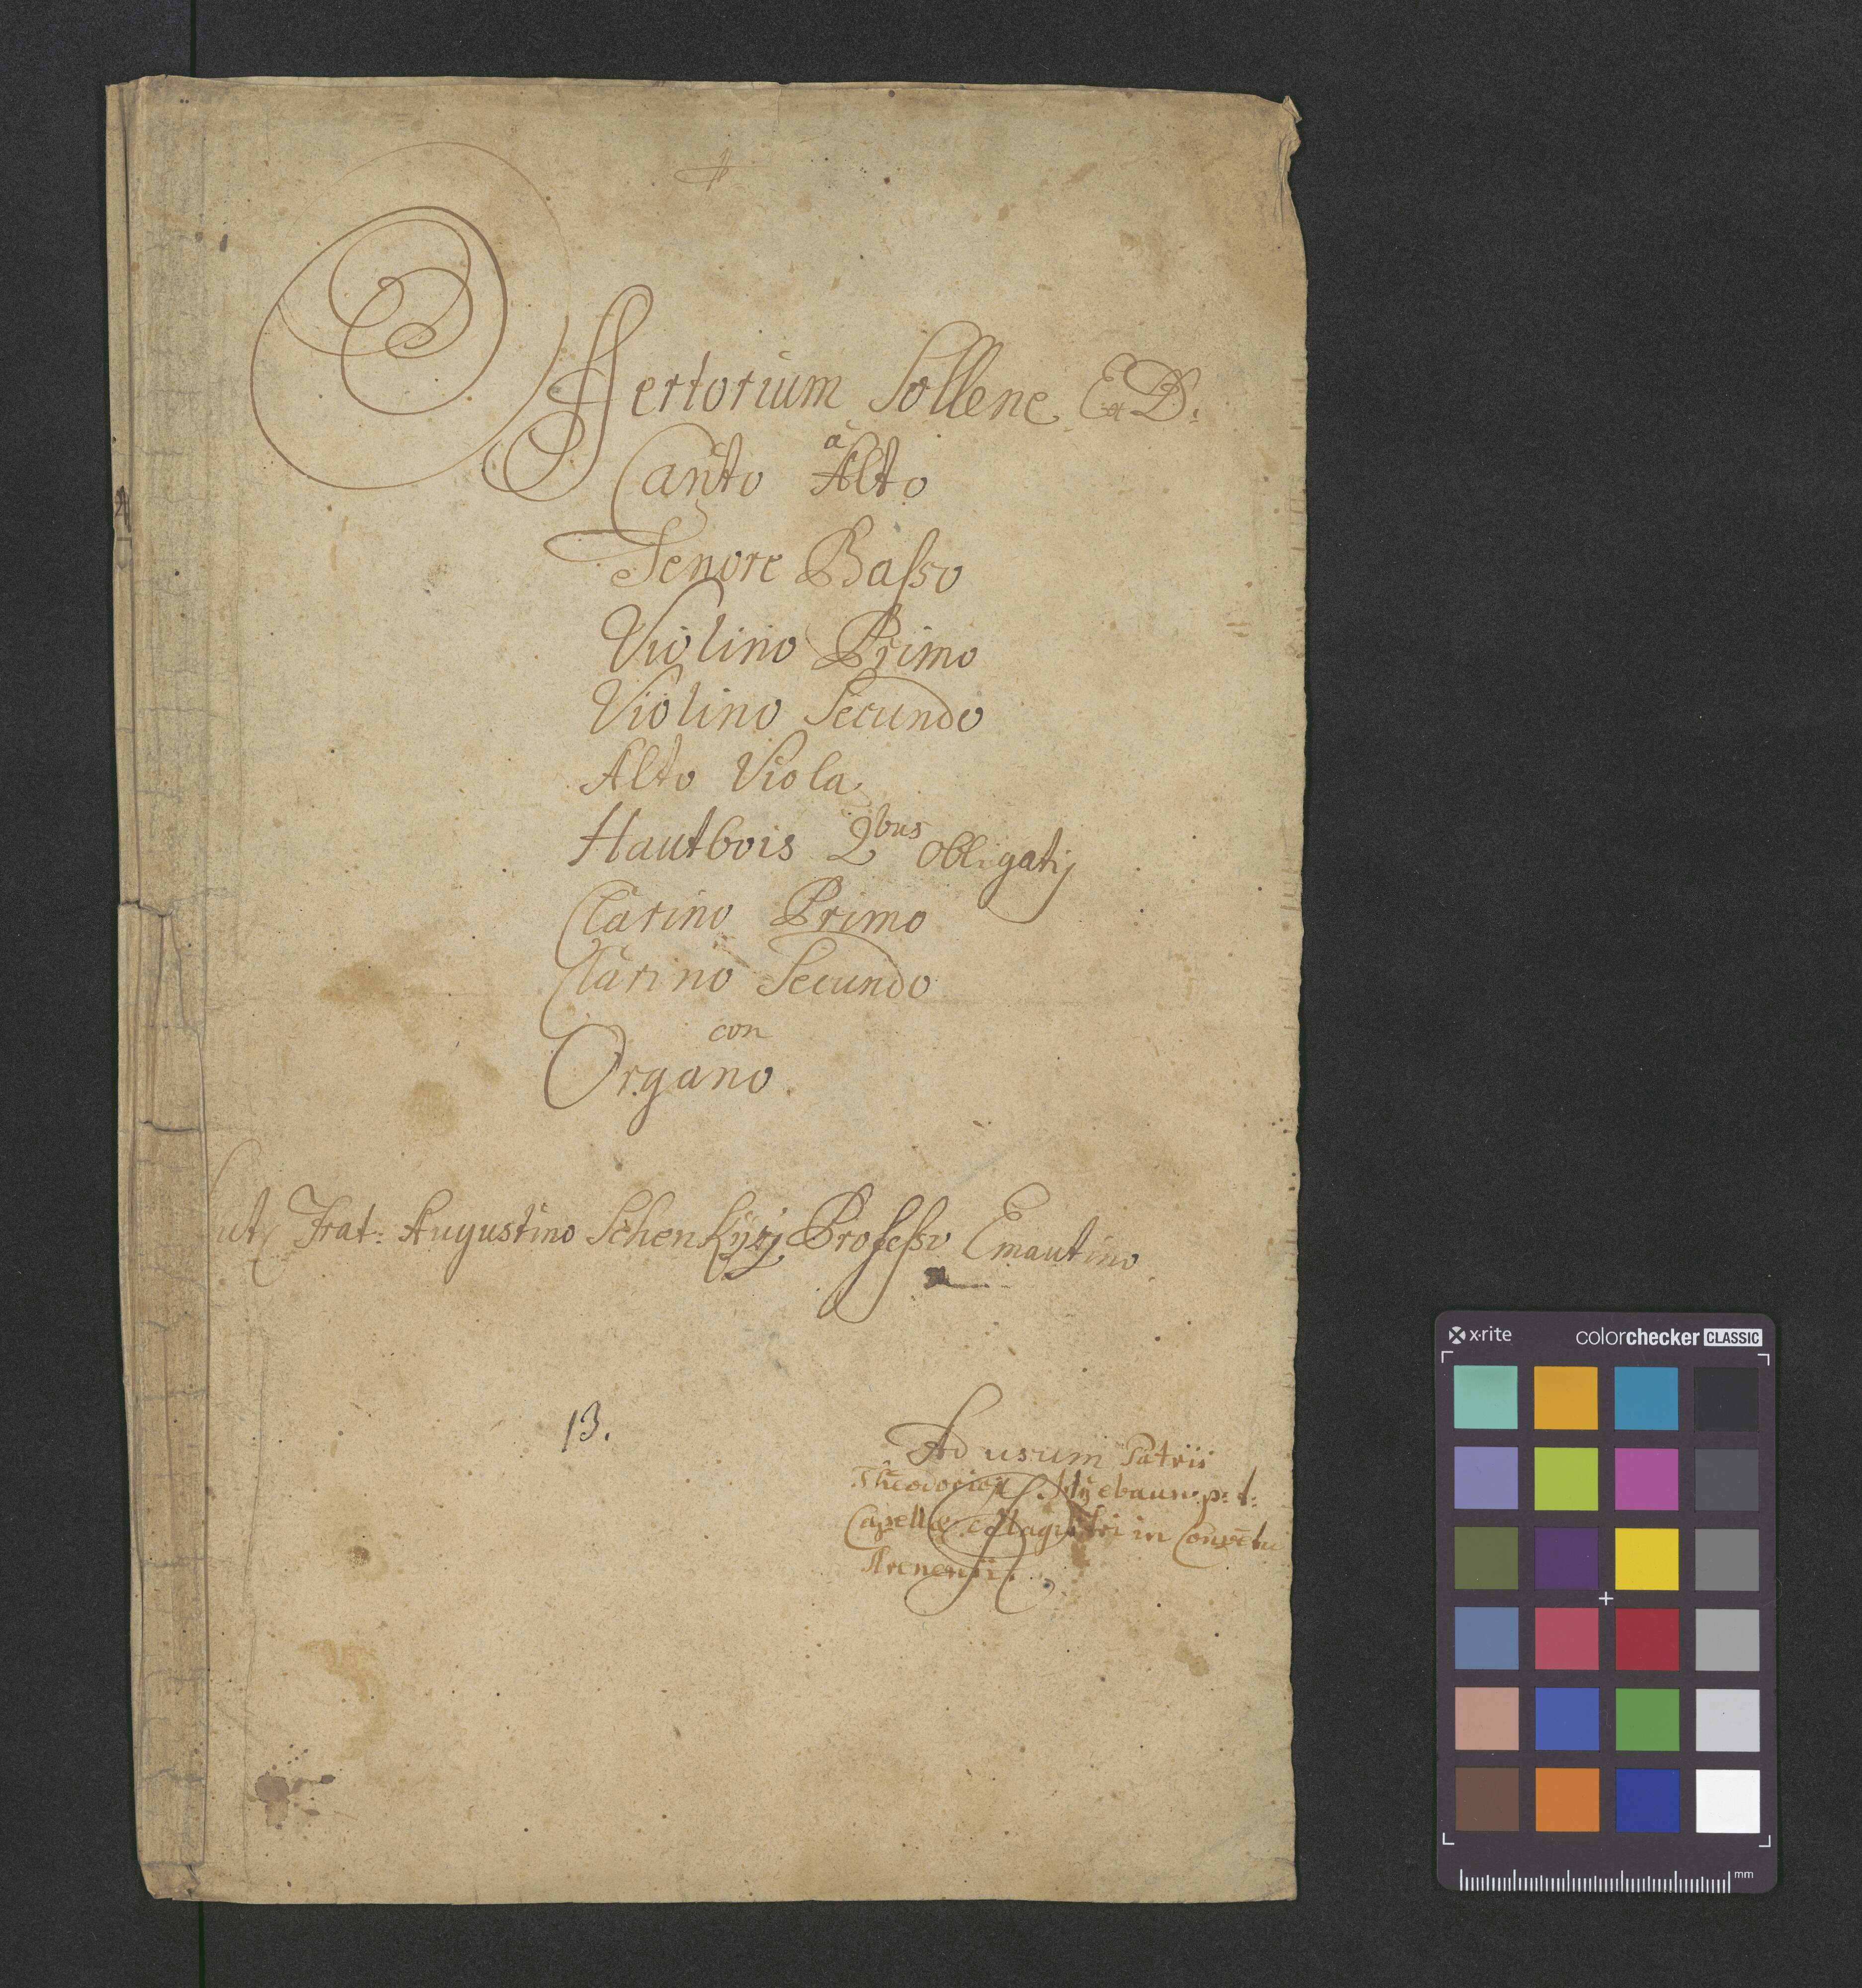 Offertorium Sollene Ex D:
à
Canto Alto
Tenore Basso
Violino Primo
Violino Secundo
Alto Viola
Hautbois 2bus obligatij
Clarino Primo
Clarino Secundo
con
Organo.
Aut: Frat: Augustino Schenkyrj Professo Emautino
13.
Ad usum Patris
p: t:
Capellae Magistri in Convētu
Arenensi.
x·rite colorchecker CLASSIC
mm